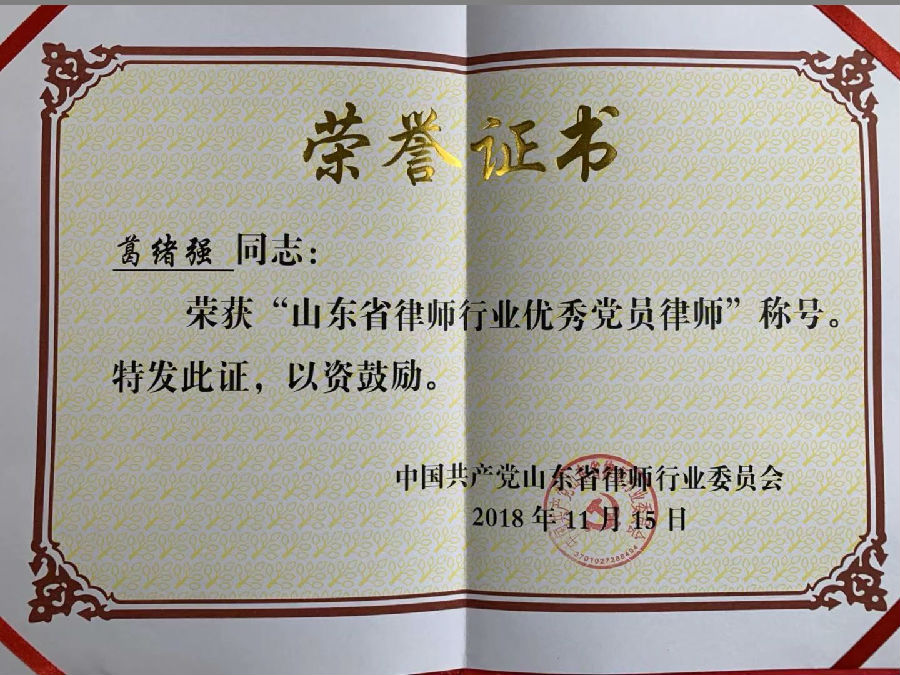 荣誉证书
葛绪强 同志：
荣获“山东省律师行业优秀党员律师”称号。
特发此证，以资鼓励。
中国共产党山东省律师行业委员会
2018 年 11 月 15 日